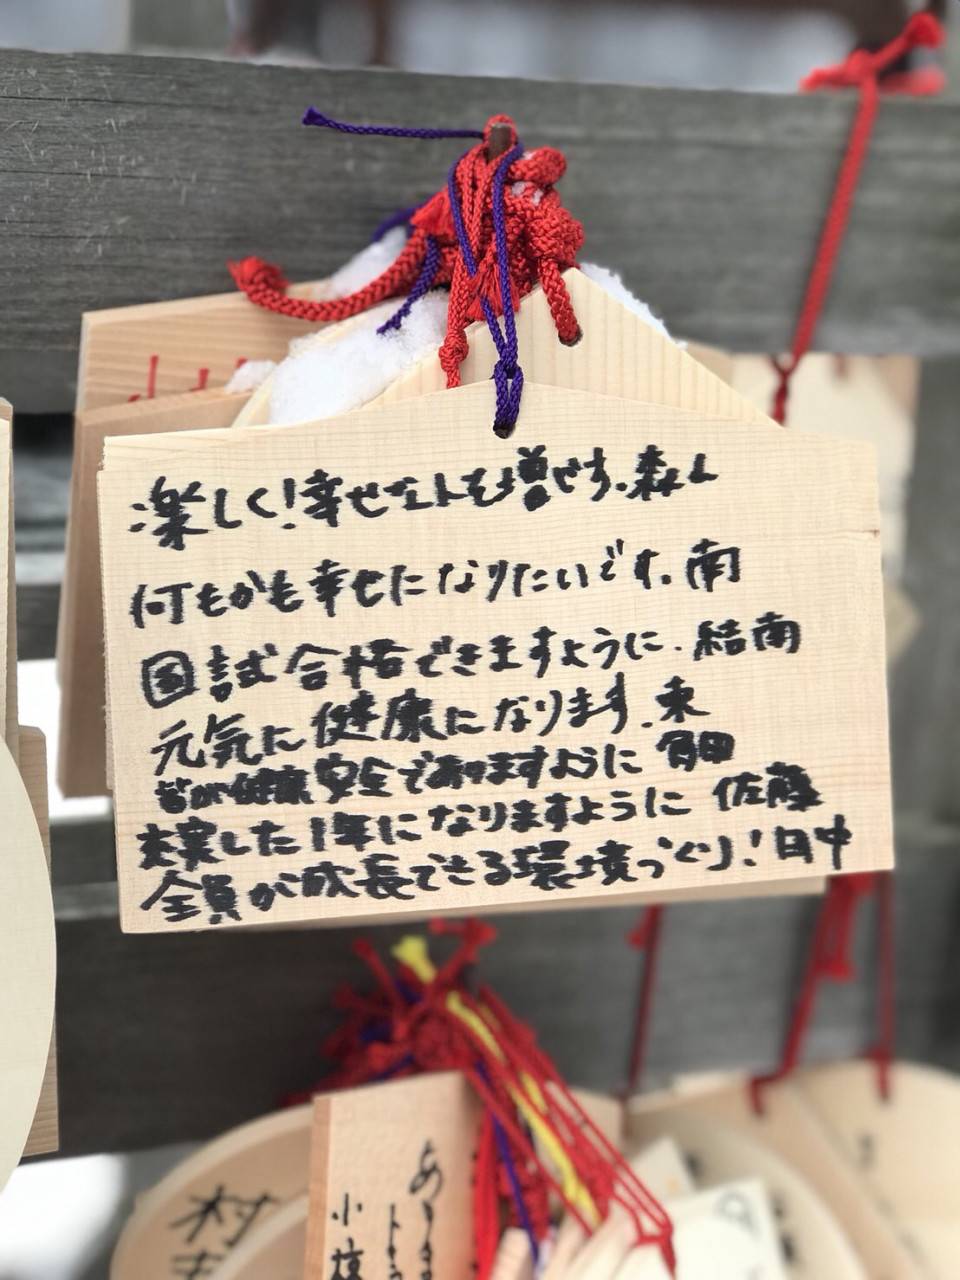 楽しく!幸せなトを増やす.森山
何もかも幸せになりたいです.南
国試合格できますように.結南
元気に健康になります.東
皆が健康安全でありますように 角田
充実した1年になりますように 佐藤
全員が成長できる環境づくり!田中
村
小